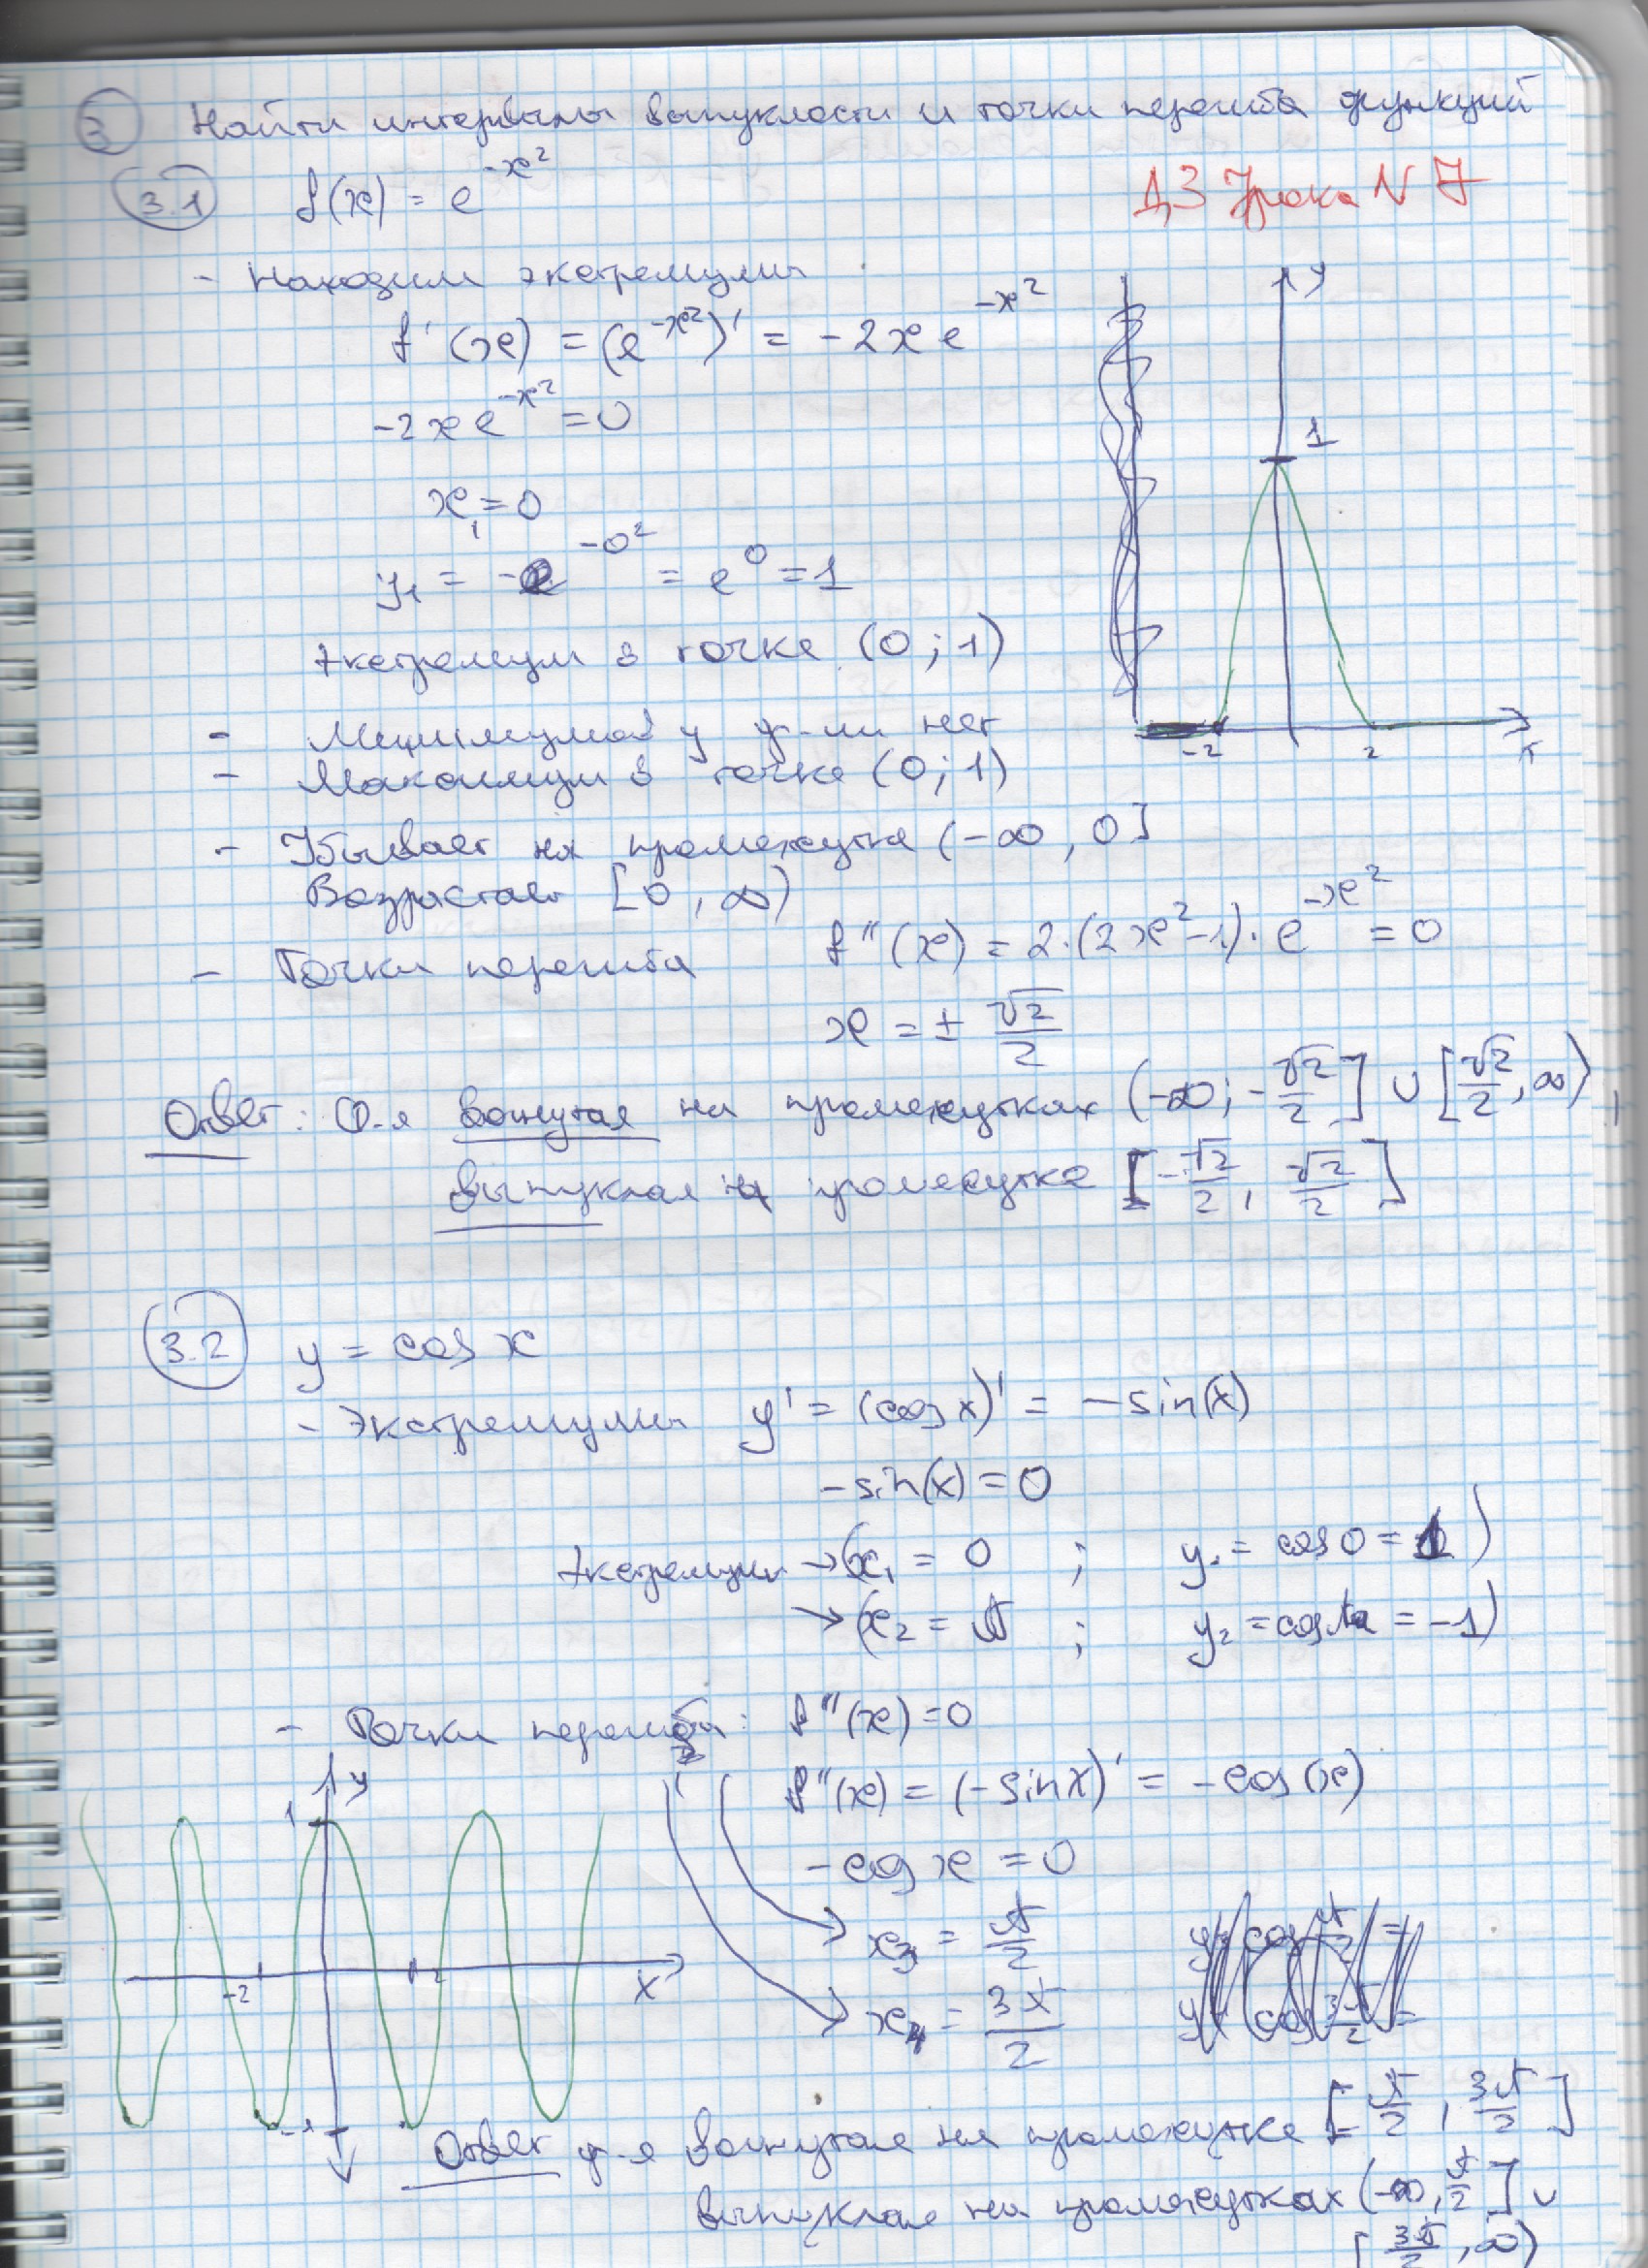 3 Найти интервалы выпуклости и точки перегиба функций
3.1 f(x) = e^{-x^2}
ДЗ Урока N 7
- Находим экстремумы
f'(x) = (e^{-x^2})' = -2xe^{-x^2}
-2xe^{-x^2} = 0
x₁ = 0
y₁ = -e^{-0^2} = e^0 = 1
Экстремум в точке (0; 1)
- Минимумов у ф-ии нет
- Максимум в точке (0; 1)
- Убывает на промежутке (-∞, 0]
Возрастает [0, ∞)
y
1
-2 2 x
- Точки перегиба f''(x) = 2·(2x²-1)·e^{-x^2} = 0
x = ± √2/2
Ответ: Ф-я вогнутая на промежутках (-∞; -√2/2] ∪ [√2/2, ∞),
выпуклая на промежутке [-√2/2, √2/2]
3.2 y = cos x
- Экстремумы y' = (cos x)' = -sin(x)
-sin(x) = 0
Экстремумы → (x₁ = 0 ; y₁ = cos 0 = 1)
→ (x₂ = π ; y₂ = cos π = -1)
- Точки перегиба: f''(x) = 0
f''(x) = (-sin x)' = -cos(x)
-cos x = 0
x₃ = π/2
x₄ = 3π/2
y
1
-2 2 x
-1
Ответ ф-я вогнутая на промежутке [π/2, 3π/2]
выпуклая на промежутках (-∞, π/2] ∪
[3π/2, ∞)